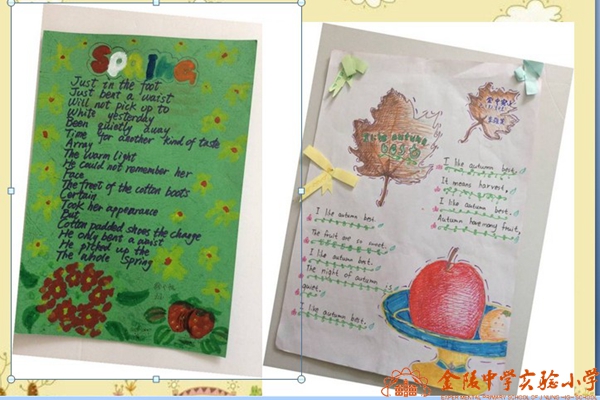 SPRING
Just in the foot
Just bent a waist
Will not pick up to
White yesterday
Been quietly away
Time for another kind of taste
Array
The warm light
He could not remember her
Face
The freet of the cotton boots
Certain
Look her appearance
But
Cotton padded shoes the change
He only bent a waist
He picked up the
The whole Spring
I like autumn
best
I like autumn best.
It means harvest.
I like autumn best.
Autumn have many fruits
I like autumn best.
The fruit are so sweet.
I like autumn best.
The night of autumn is
quiet.
I like autumn best.
金陵中学实验小学
EXPERIMENTAL PRIMARY SCHOOL OF JINLING HIGH SCHOOL